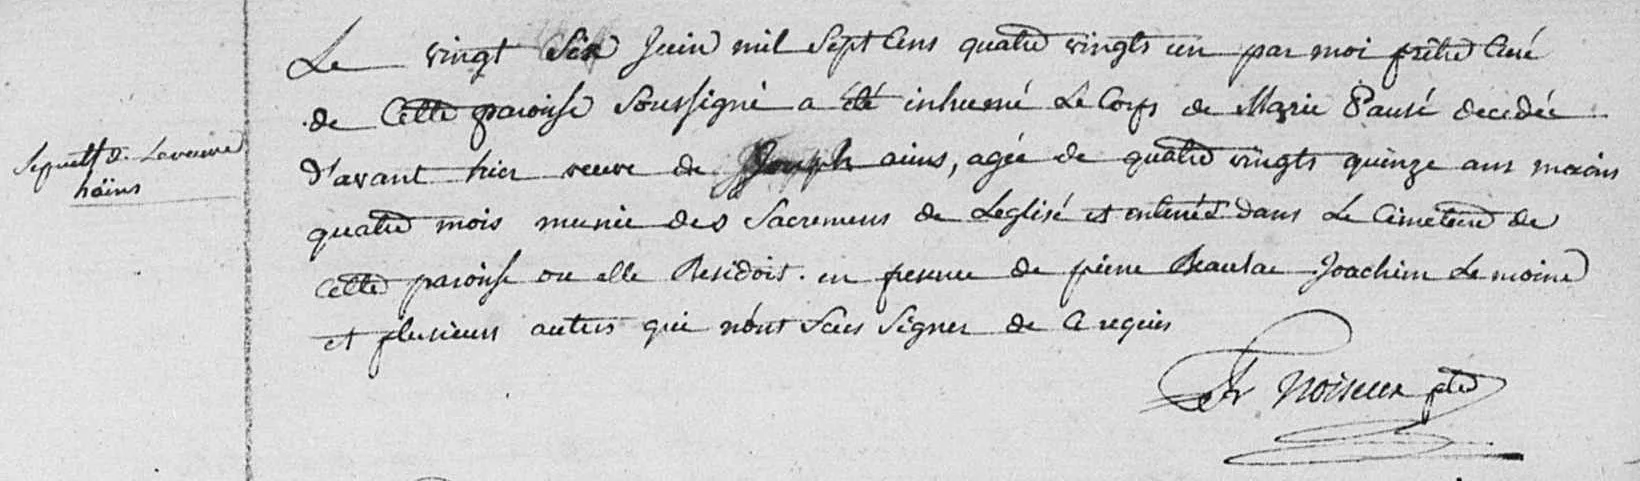 Sepult de La veuve
häins
Le vingt Six Juin mil Sept Cens quatre vingts un par moi prêtre Curé
de Cette paroisse Soussigné a été inhumé Le Corps de Marie Pausé decedée
d'avant hier veuve de Joseph ains, agée de quatre vingts quinze ans moins
quatre mois munie des Sacremens de Leglisé et enterrée dans Le Cimetiere de
cette paroisse ou elle Residoit. en presence de pierre Beaulac Joachim Le moine
et plusieurs autres qui n'ont Sceu Signer de Ce requis
Fr Noiseux ptre